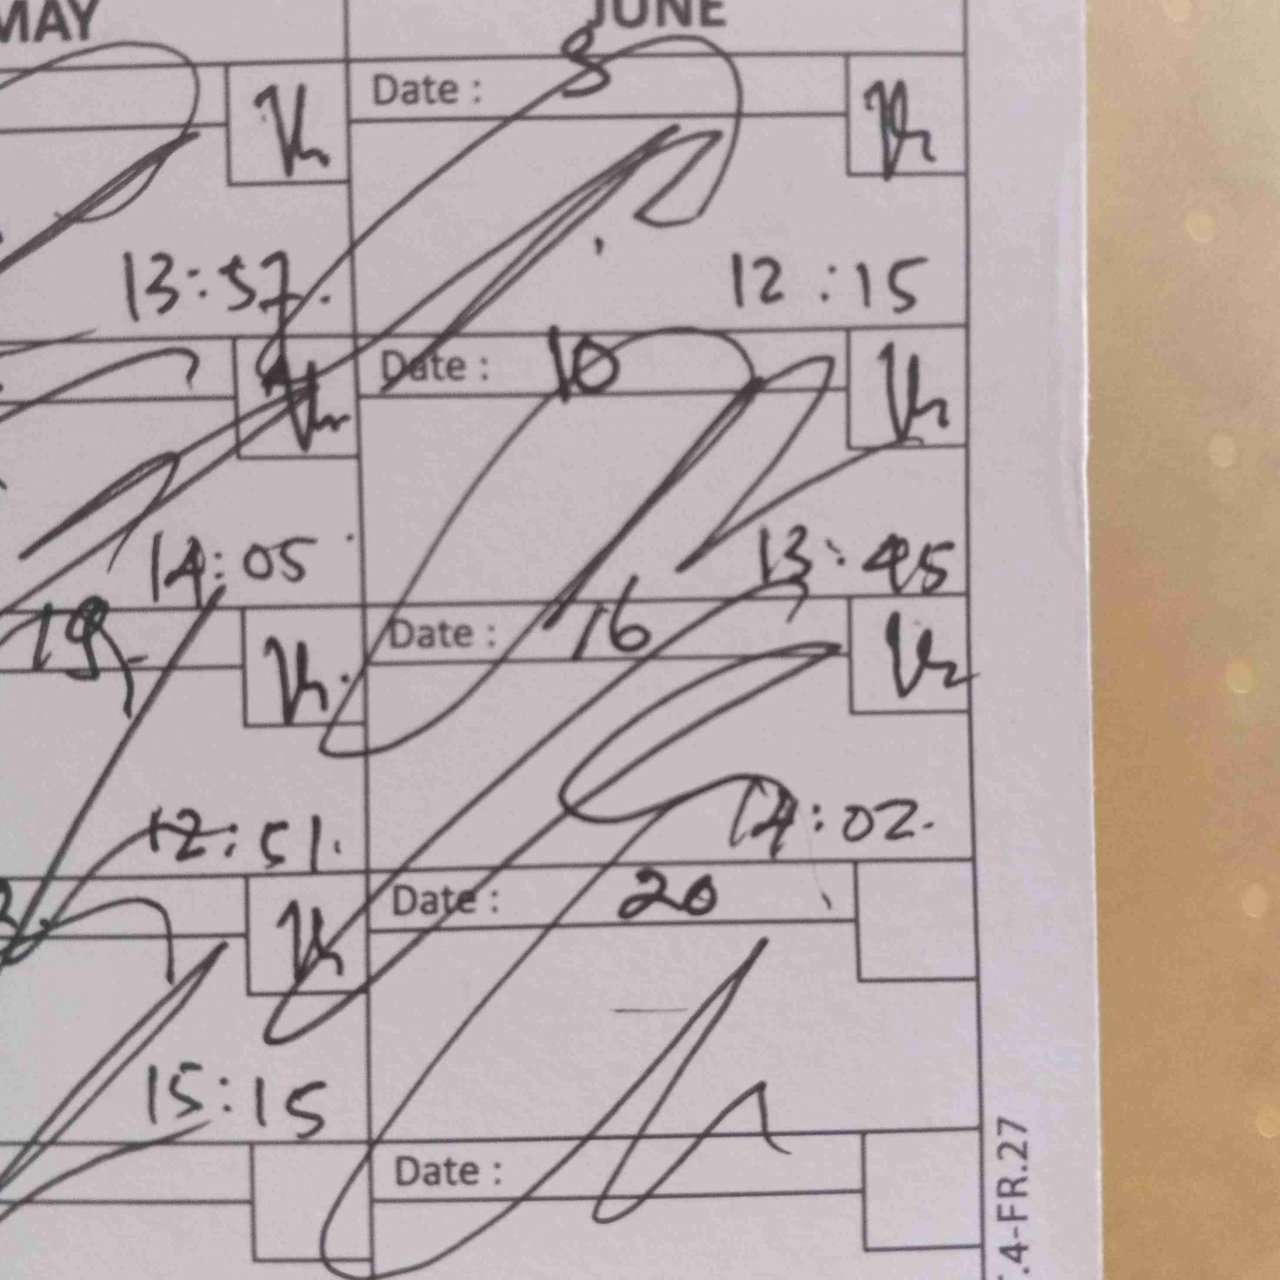 MAY JUNE
Date : 8
13:57. 12:15
Date : 10
14:05 13:45
19 Date : 16
12:51. 14:02.
Date : 20
15:15
Date :
.4-FR.27